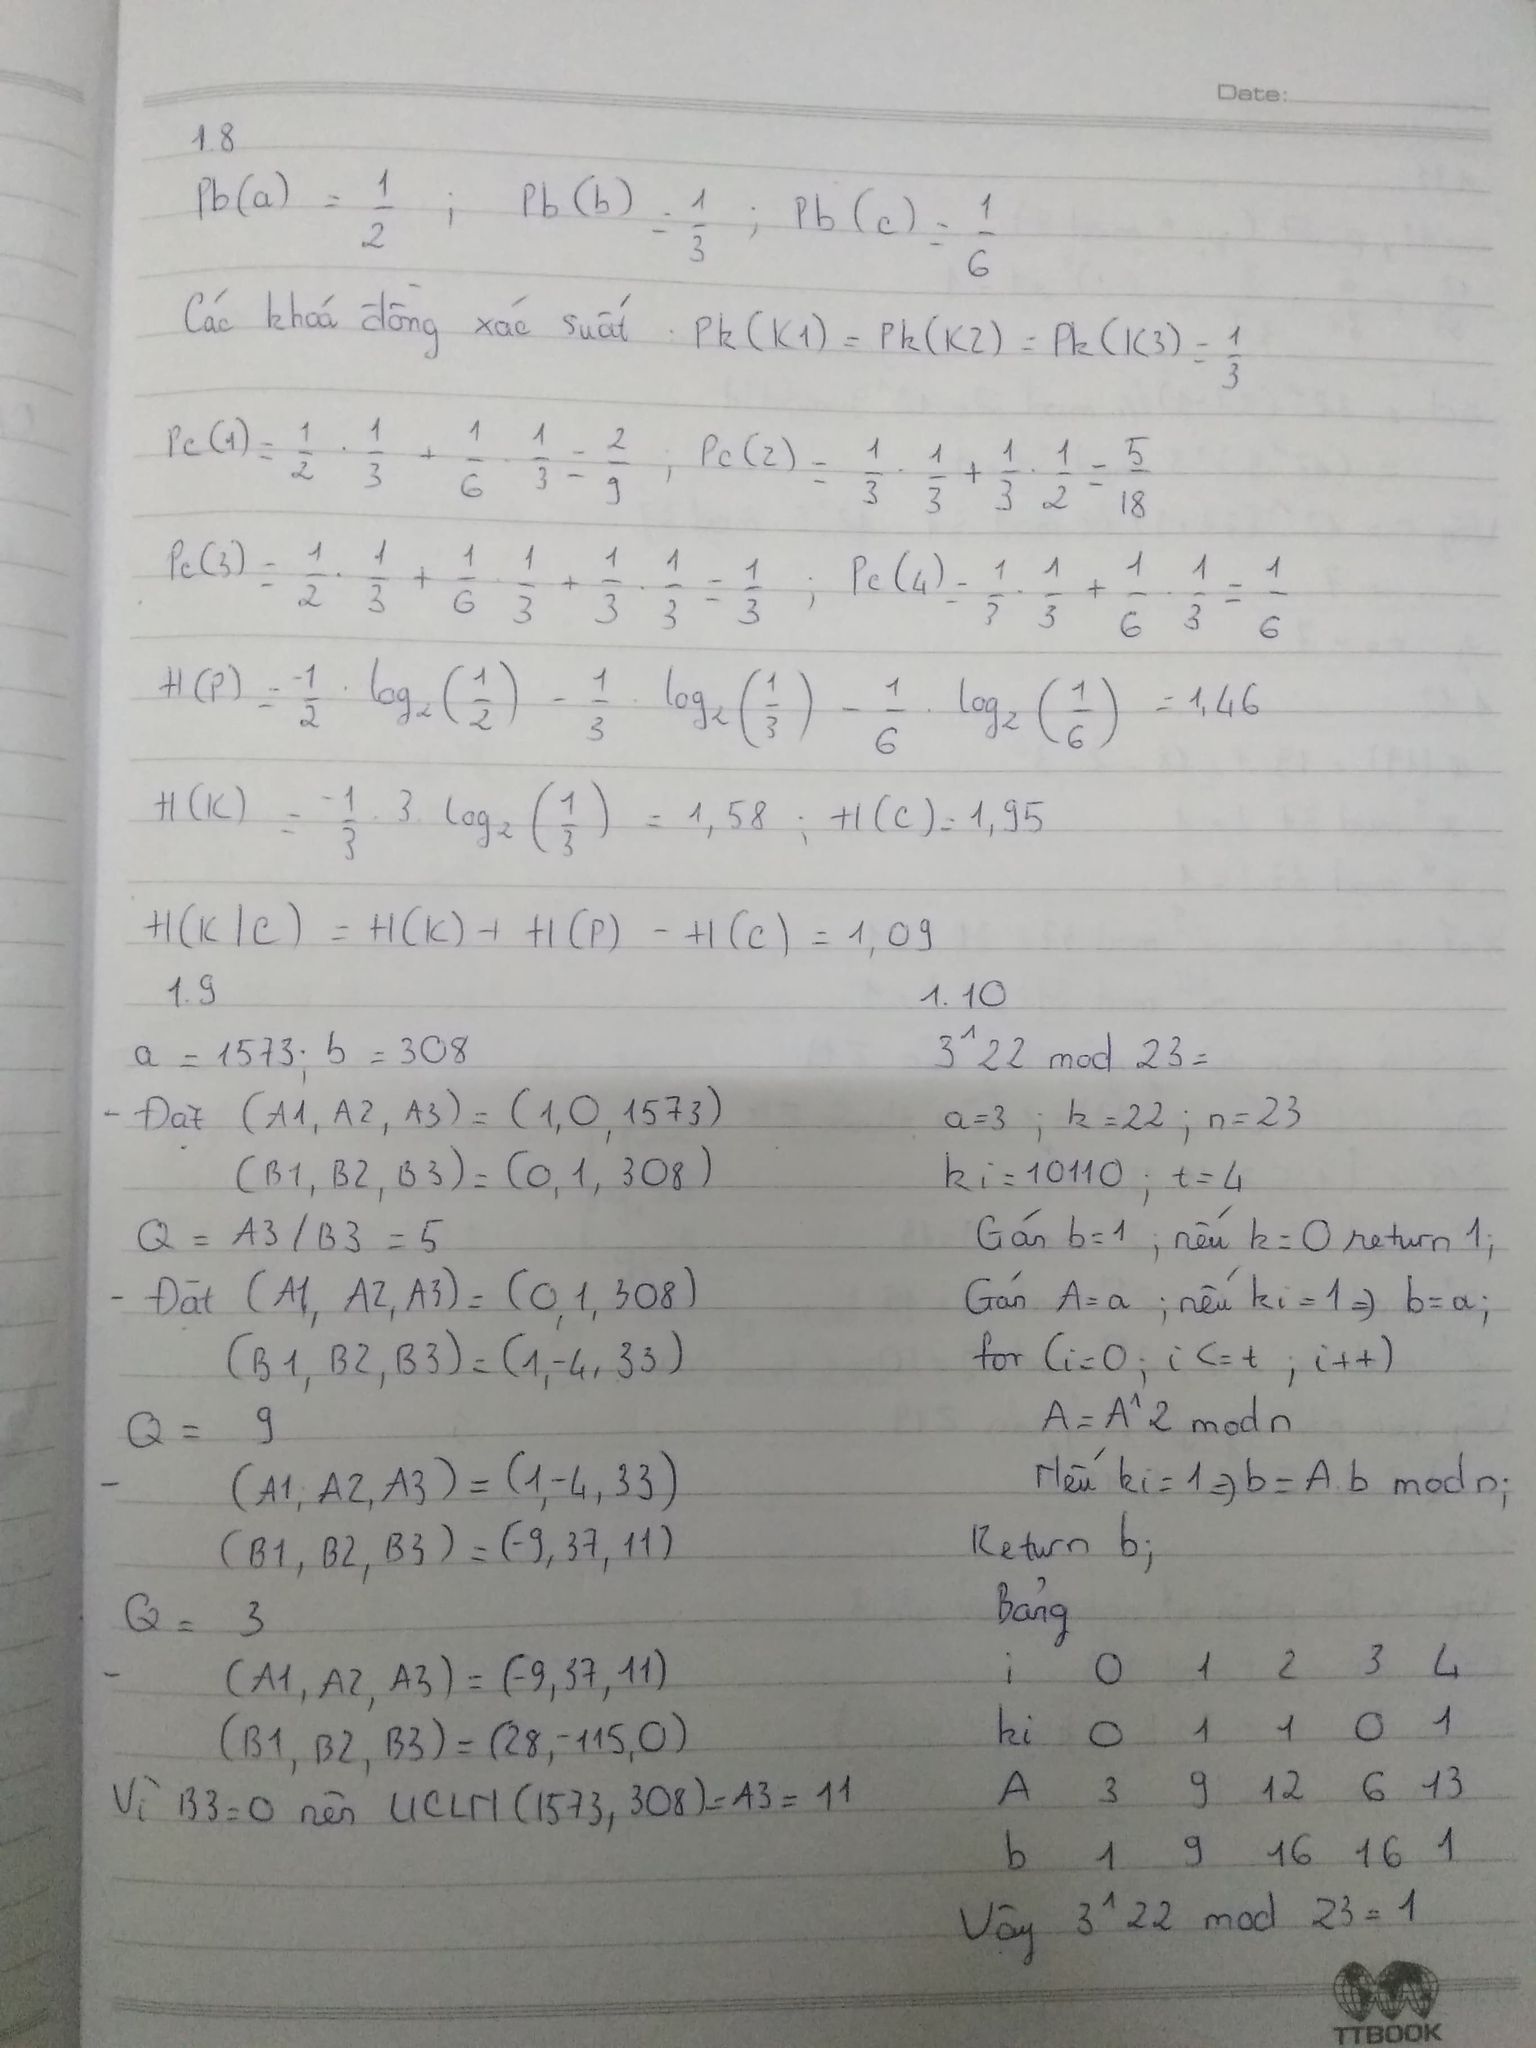 Date:
1.8
Pb(a) = 1/2 ; Pb(b) = 1/3 ; Pb(c) = 1/6
Các khoá đồng xác suất : Pk(K1) = Pk(K2) = Pk(K3) = 1/3
Pc(1) = 1/2 . 1/3 + 1/6 . 1/3 = 2/9 ; Pc(2) = 1/3 . 1/3 + 1/3 . 1/2 = 5/18
Pc(3) = 1/2 . 1/3 + 1/6 . 1/3 + 1/3 . 1/3 = 1/3 ; Pc(4) = 1/3 . 1/3 + 1/6 . 1/3 = 1/6
H(P) = -1/2 . log₂(1/2) - 1/3 . log₂(1/3) - 1/6 . log₂(1/6) = 1,46
H(K) = -1/3 . 3 log₂(1/3) = 1,58 ; H(C) = 1,95
H(K|C) = H(K) + H(P) - H(C) = 1,09
1.9
a = 1573; b = 308
- Đặt (A1, A2, A3) = (1, 0, 1573)
(B1, B2, B3) = (0, 1, 308)
Q = A3 / B3 = 5
- Đặt (A1, A2, A3) = (0, 1, 308)
(B1, B2, B3) = (1, -4, 33)
Q = 9
- (A1, A2, A3) = (1, -4, 33)
(B1, B2, B3) = (-9, 37, 11)
Q = 3
- (A1, A2, A3) = (-9, 37, 11)
(B1, B2, B3) = (28, -115, 0)
Vì B3 = 0 nên UCLN (1573, 308) = A3 = 11
1.10
3^22 mod 23 =
a=3 ; k=22 ; n=23
ki = 10110 ; t=4
Gán b=1 ; nếu k=0 return 1;
Gán A=a ; nếu ki=1 => b=a;
for (i=0 ; i <= t ; i++)
A = A^2 mod n
Nếu ki=1 => b = A.b mod n;
Return b;
Bảng
i 0 1 2 3 4
ki 0 1 1 0 1
A 3 9 12 6 13
b 1 9 16 16 1
Vậy 3^22 mod 23 = 1
TTBOOK